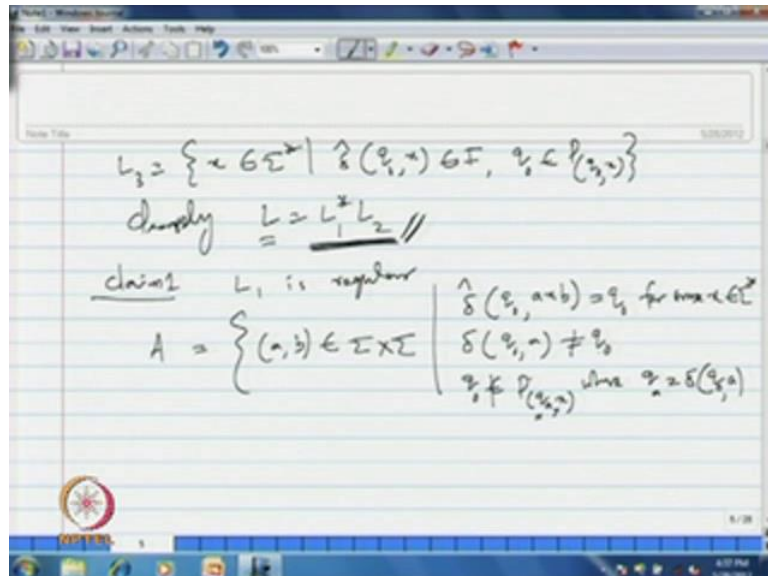 Note1 - Windows Journal
File Edit View Insert Actions Tools Help
Note Title
5/28/2012
L_3 = { x ∈ Σ* | δ̂(q_0, x) ∈ F, q_0 ∉ P_(q_0, x) }
Clearly L = L_1* L_2 //
claim 1 L_1 is regular
A = { (a, b) ∈ Σ × Σ | δ̂(q_0, axb) = q_0 for some x ∈ Σ*
δ(q_0, a) ≠ q_0
q_0 ∉ P_(q_a, x) where q_a = δ(q_0, a)
NPTEL
5
4:37 PM